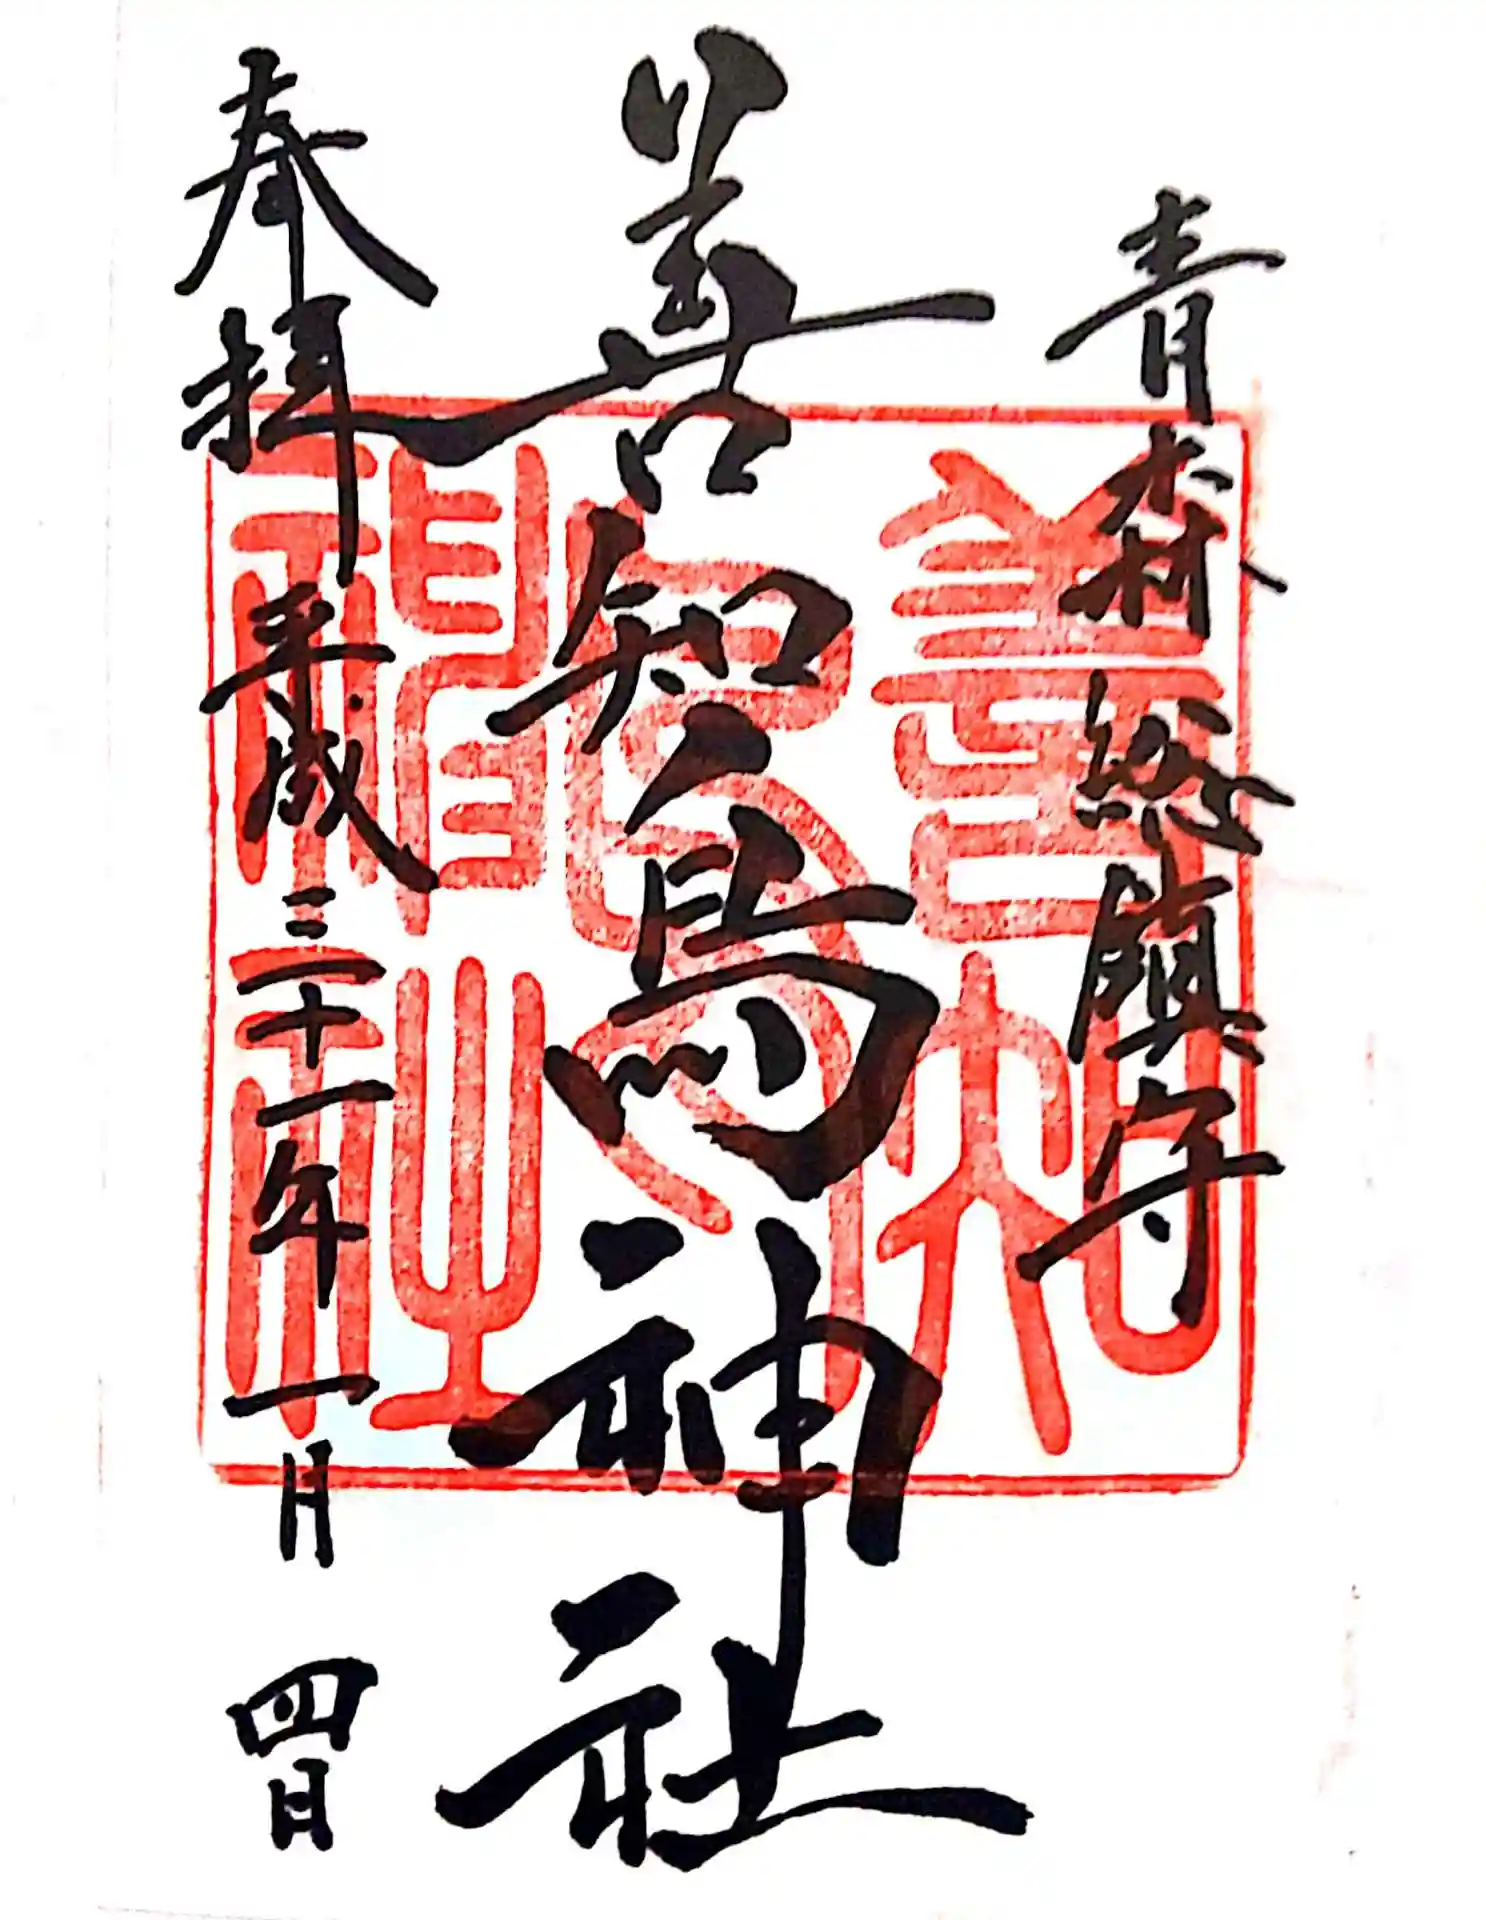 青森總鎮守
善知鳥神社
奉拝 平成三十一年一月四日
善知鳥神社